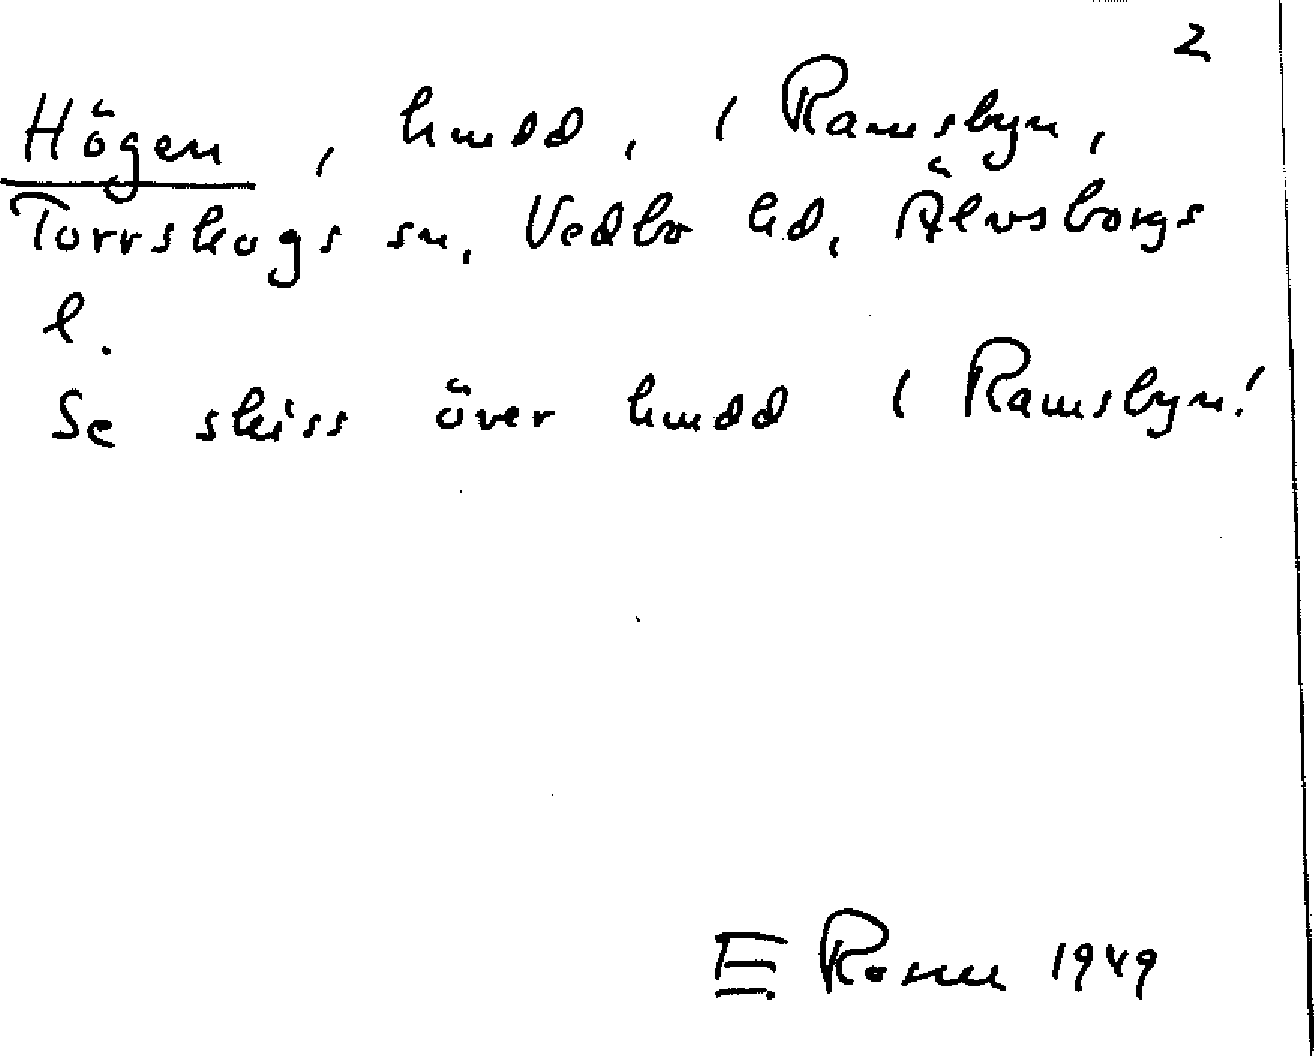 2
Högen, hmdd, i Ramsbyn,
Torrskogs sn, Vedbo hd, Älvsborgs
l.
Se skiss över hmdd i Ramsbyn!
E Rosen 1949